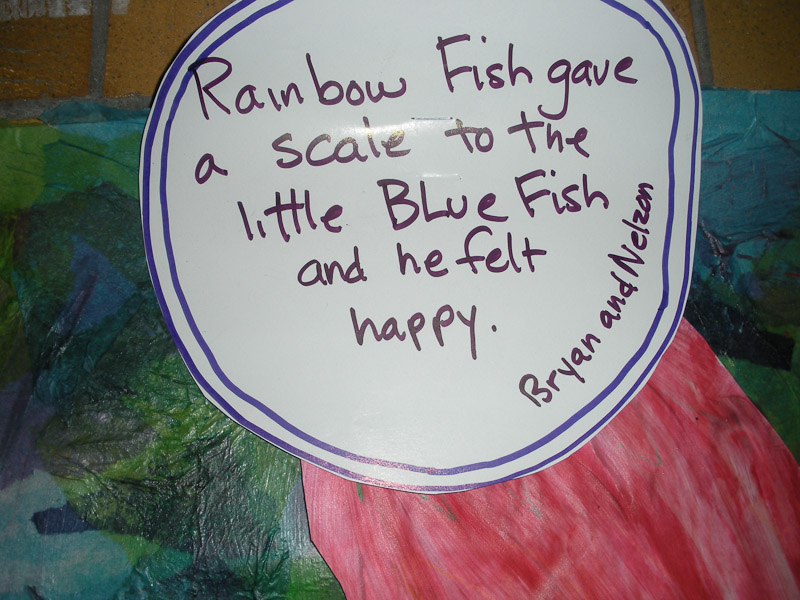 Rainbow Fish gave
a scale to the
little BLue Fish
and he felt
happy.
Bryan and Nelzon